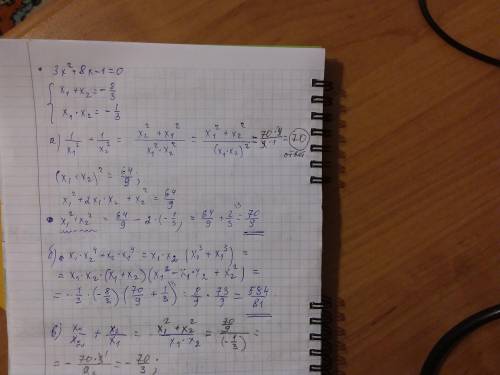 • 3x²+8x-1=0
{ x₁+x₂=-8/3
x₁·x₂=-1/3
а) 1/x₁² + 1/x₂² = (x₂²+x₁²)/(x₁²·x₂²) = (x₁²+x₂²)/(x₁·x₂)² = (70·9)/(9·1) = 70
ответ
(x₁+x₂)² = 64/9;
x₁²+2x₁·x₂+x₂² = 64/9
x₁²+x₂² = 64/9 - 2·(-1/3) = 64/9 + 2/3 = 70/9
б) x₁·x₂⁴+x₂·x₁⁴ = x₁·x₂(x₂³+x₁³) =
= x₁·x₂·(x₁+x₂)(x₁²-x₁·x₂+x₂²) =
= -1/3·(-8/3)(70/9+1/3) = 8/9·73/9 = 584/81
в) x₁/x₂ + x₂/x₁ = (x₁²+x₂²)/(x₁·x₂) = (70/9)/(-1/3) =
= -(70·3)/9 = -70/3;